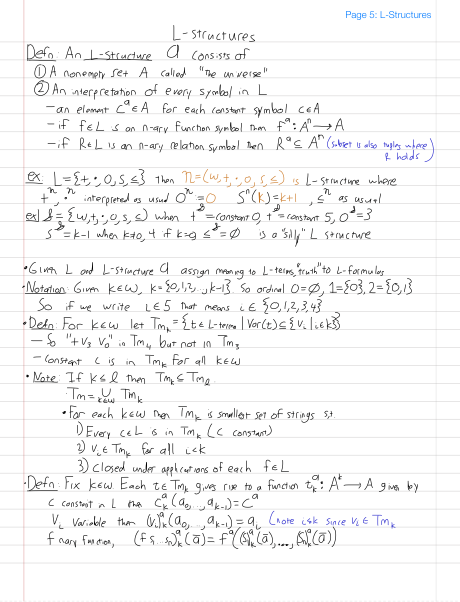 Page 5: L-Structures
L-structures
Defn: An L-structure 𝔞 consists of
① A nonempty set A called "the universe"
② An interpretation of every symbol in L
- an element c^𝔞 ∈ A for each constant symbol c∈A
- if f∈L is an n-ary function symbol then f^𝔞: A^n → A
- if R∈L is an n-ary relation symbol then R^𝔞 ⊆ A^n (subset is also tuples where
R holds)
ex: L={+,·,0,S,≤} then 𝔫=(ω,+,·,0,S,≤) is L-structure where
+^𝔫, ·^𝔫 interpreted as usual 0^𝔫=0 S^𝔫(k)=k+1, ≤^𝔫 as usual
ex] 𝔷=(ω,+,·,0,S,≤) when +^𝔷=constant 0, ·^𝔷=constant 5, 0^𝔷=3
S^𝔷=k-1 when k≠0, 4 if k=0 ≤^𝔷=∅ is a "silly" L structure
• Given L and L-structure 𝔞 assign meaning to L-terms, "truth" to L-formulas
• Notation: Given k∈ω, k={0,1,2,...,k-1} So ordinal 0=∅, 1={0}, 2={0,1}
So if we write i∈5 that means i∈{0,1,2,3,4}
• Defn: For k∈ω let Tm_k={t∈L-terms | Var(t)⊆{v_i | i∈k}}
- So "+v_3 v_0" in Tm_4 but not in Tm_3
- constant c is in Tm_k for all k∈ω
• Note: If k≤l then Tm_k ⊆ Tm_l
Tm=⋃_{k∈ω} Tm_k
• For each k∈ω then Tm_k is smallest set of strings s.t.
1) Every c∈L is in Tm_k (c constant)
2) v_i∈Tm_k for all i<k
3) closed under applications of each f∈L
• Defn: Fix k∈ω Each τ∈Tm_k gives rise to a function τ_k^𝔞: A^k → A given by
c constant in L then c_k^𝔞(a_0,...,a_{k-1})=c^𝔞
v_i variable then (v_i)_k^𝔞(a_0,...,a_{k-1})=a_i (note i<k since v_i∈Tm_k
f nary function, (f s_1...s_n)_k^𝔞(ā)=f^𝔞((s_1)_k^𝔞(ā),...,(s_n)_k^𝔞(ā))